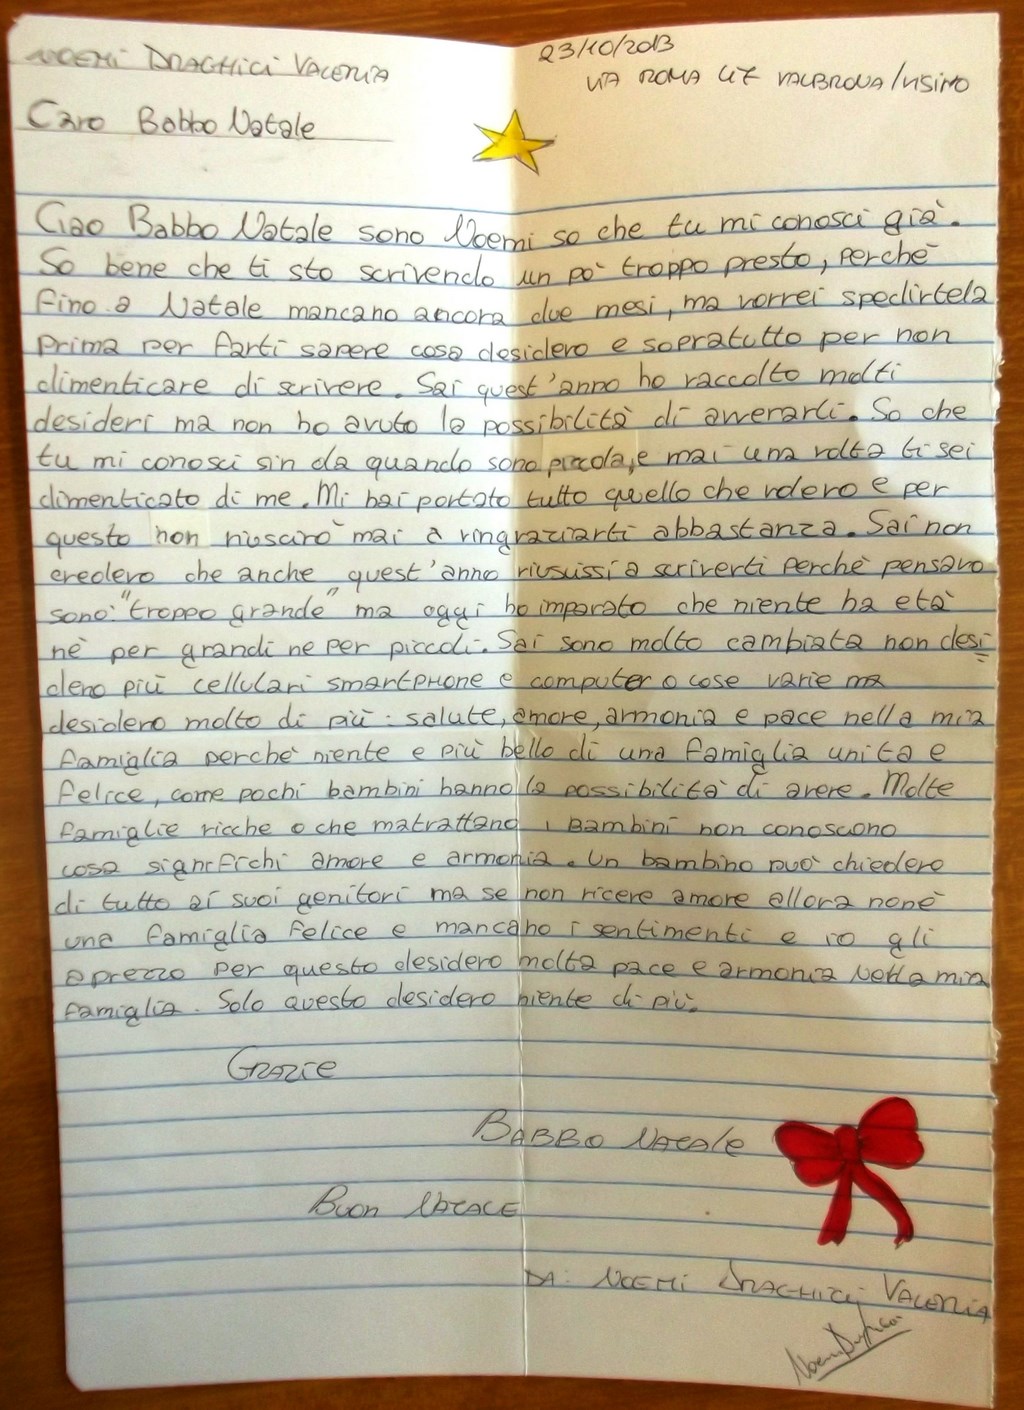 NOEMI DRAGHICI VALERIA
23/10/2013
VIA ROMA 47 VALBRONA/VISINO
Caro Babbo Natale
Ciao Babbo Natale sono Noemi so che tu mi conosci già.
So bene che ti sto scrivendo un pò troppo presto, perchè
fino a Natale mancano ancora due mesi, ma vorrei spedirtela
prima per farti sapere cosa desidero e sopratutto per non
dimenticare di scrivere. Sai quest'anno ho raccolto molti
desideri ma non ho avuto la possibilità di avverarli. So che
tu mi conosci sin da quando sono piccola, e mai una volta ti sei
dimenticato di me. Mi hai portato tutto quello che volevo e per
questo non riuscirò mai a ringraziarti abbastanza. Sai non
credevo che anche quest'anno riusussi a scriverti perchè pensavo
sono: "troppo grande" ma oggi ho imparato che niente ha età
nè per grandi ne per piccoli. Sai sono molto cambiata non desi
dero più cellulari smartphone e computer o cose varie ma
desidero molto di più: salute, amore, armonia e pace nella mia
famiglia perchè niente e più bello di una famiglia unita e
felice, come pochi bambini hanno la possibilità di avere. Molte
famiglie ricche o che matrattano i bambini non conoscono
cosa significhi amore e armonia. Un bambino può chiedere
di tutto ai suoi genitori ma se non riceve amore allora nonè
una famiglia felice e mancano i sentimenti e io gli
aprezzo per questo desidero molta pace e armonia nella mia
famiglia. Solo questo desidero niente di più.
GRAZIE
BABBO NATALE
BUON NATALE
DA: NOEMI DRAGHICI VALERIA